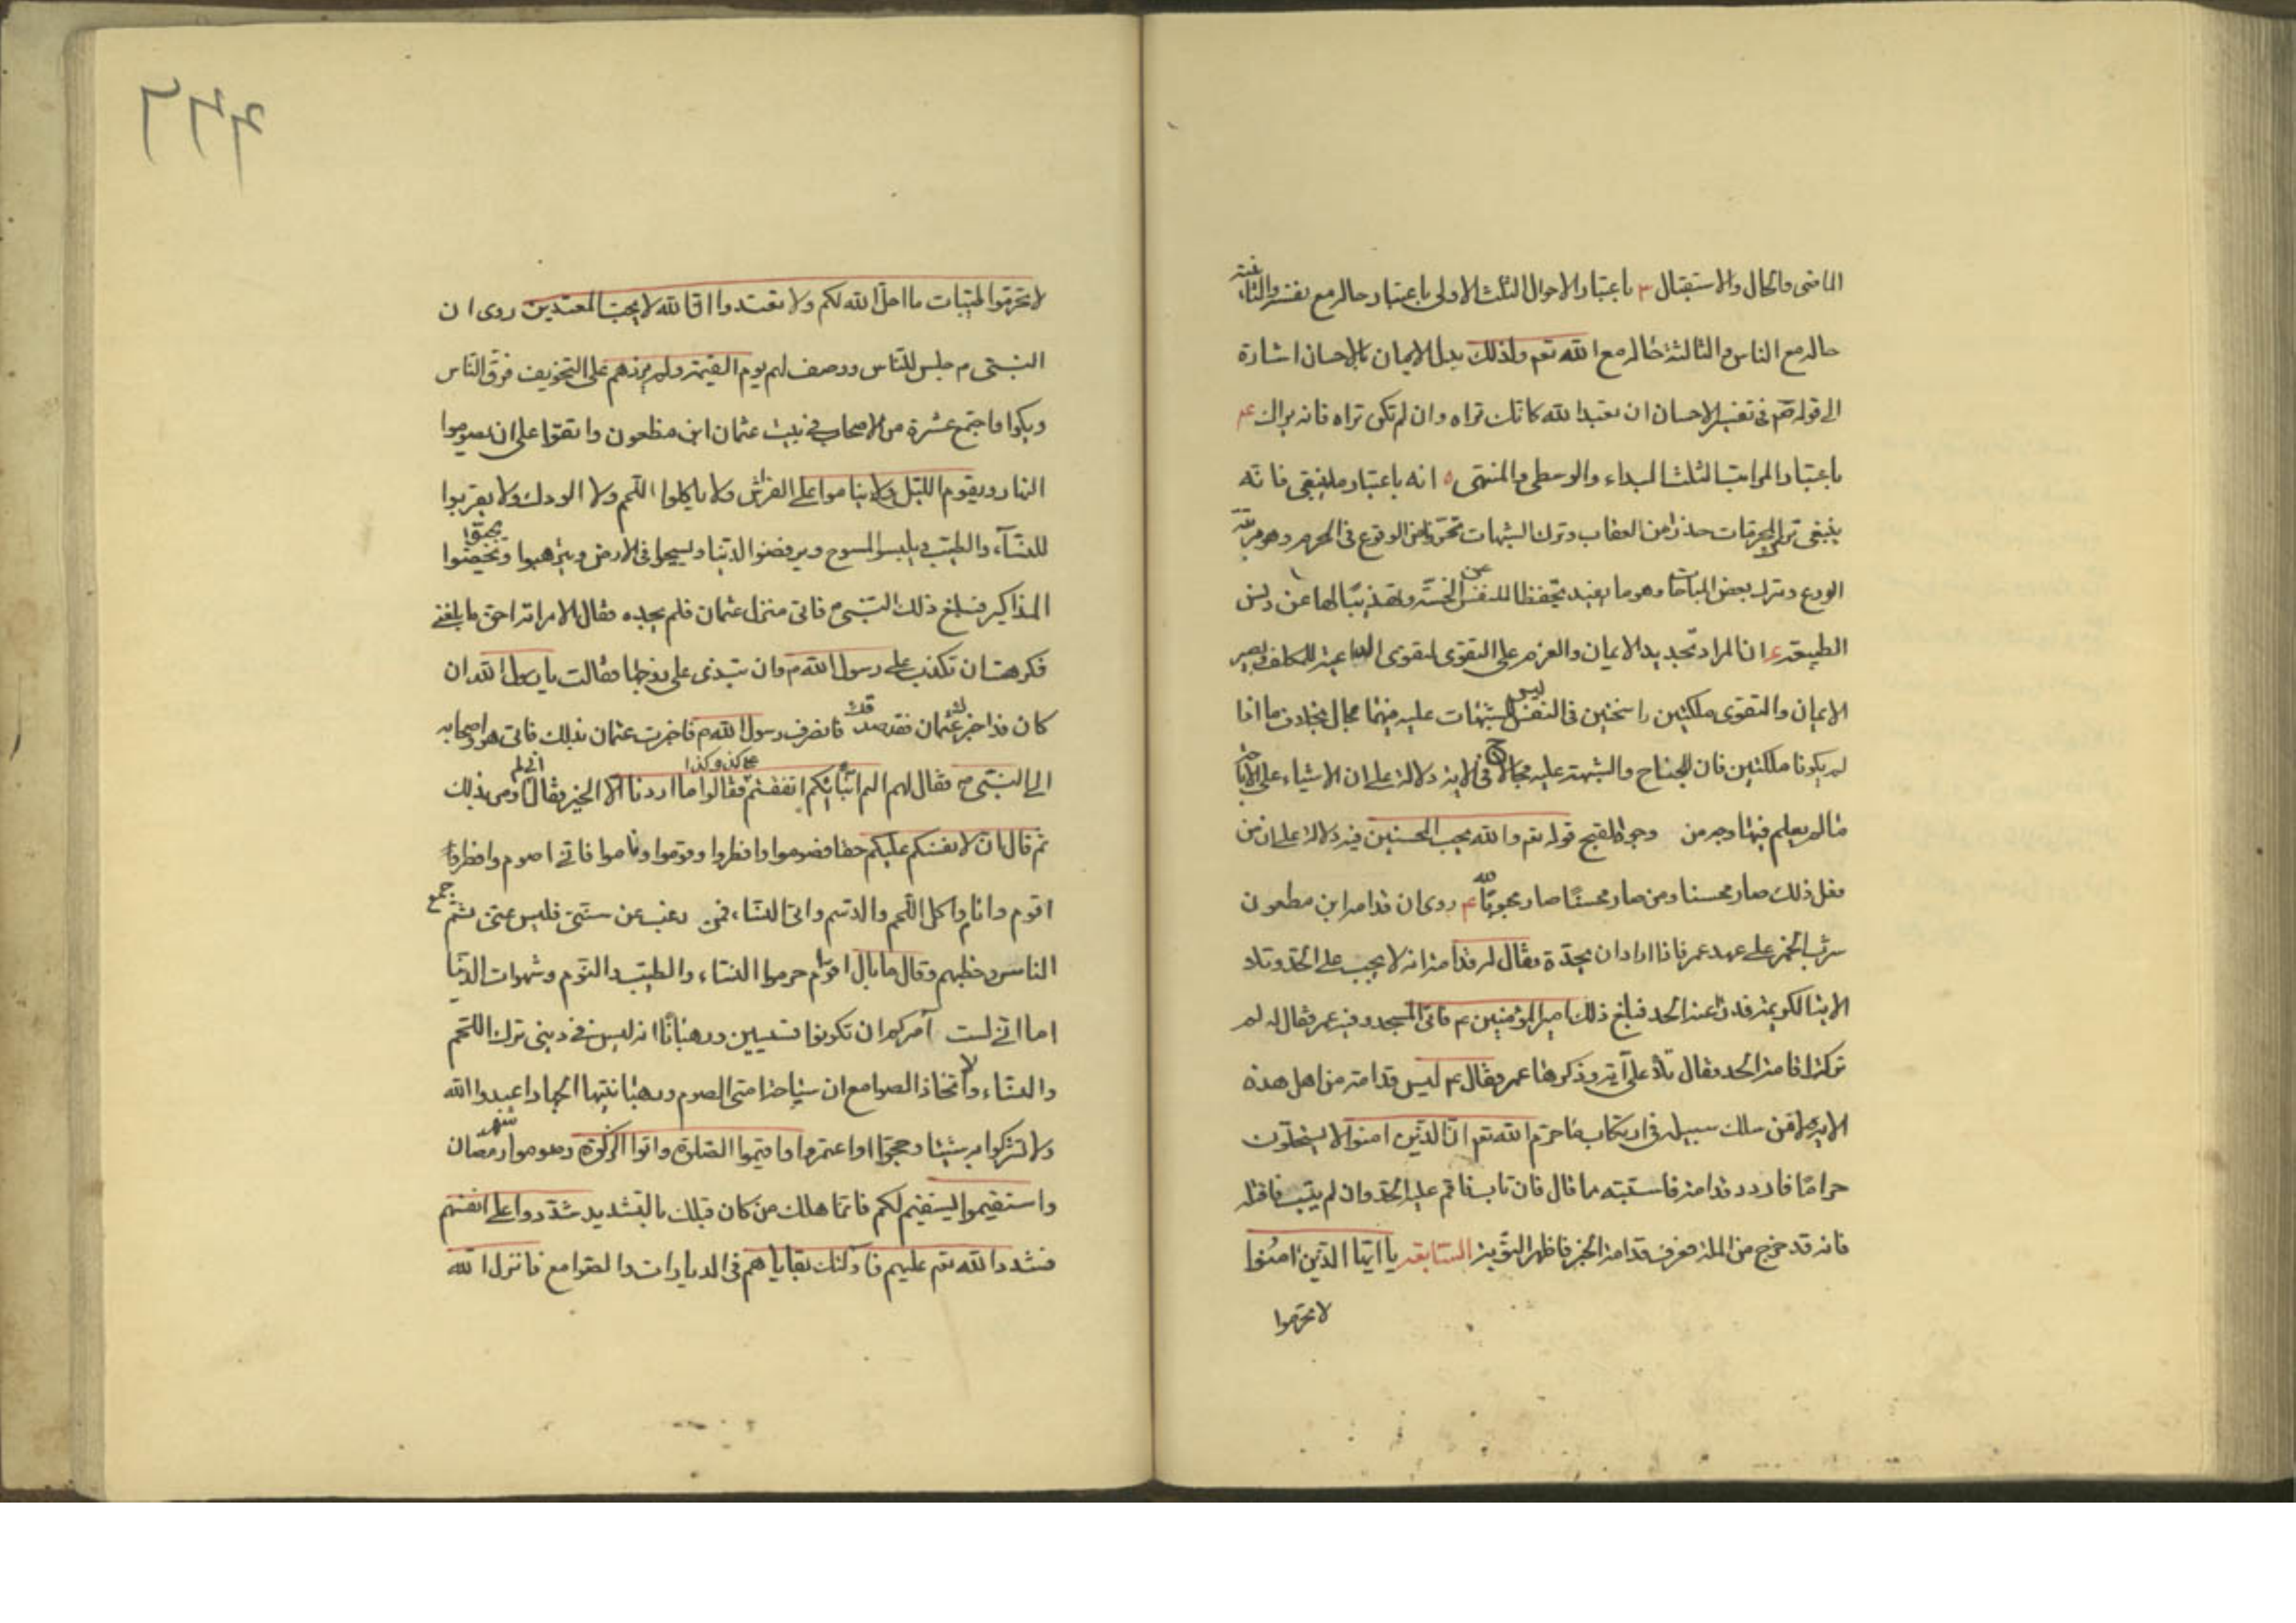 الماضى والحال والاستقبال ٣ باعتبار الاحوال الثلث الاولى باعتبار حاله مع نفسه والثانية
حاله مع الناس والثالثة حاله مع الله تعم ولذلك بدل الايمان بالاحسان اشارة
الى قوله صم فى تفسير الاحسان ان تعبد الله كانك تراه وان لم تكن تراه فانه يراك عم
باعتبار المراتب الثلث المبداء والوسطى والمنتهى ٥ انه باعتبار ما يتقى فانه
ينبغى ترك المحرمات حذرا من العقاب وترك الشبهات تحرزا من الوقوع فى الحرام وهو مرتبة
الورع وترك بعض المباحات وهو ما يفيد تحفظا للنفس عن الخسة وتهذيبا لها عن دنس
الطبيعة ع ان المراد تجديد الايمان والعزم على التقوى لتقوى الداعية للمكلف بصير
الايمان والتقوى ملكتين راسختين فى النفس ليس للشبهات عليه فيهما مجال بخلاف ما اذا
لم يكونا ملكتين فان للجناح والشبهة عليه مجالا فى الاية دلالة على ان الاشياء على الاباحة
ما لم يعلم فيها وجه من وجوه القبح قوله تعم والله يحب المحسنين فيه دلالة على ان من
فعل ذلك صار محسنا ومن صار محسنا صار محبوبا لله عم روى ان قدامه ابن مظعون
شرب الخمر على عهد عمر فاذا اراد ان يحده فقال له قدامة انه لا يجب على الحد وتلا
الاية الكريمة فدرا عنه الحد فبلغ ذلك امير المؤمنين ع فاتى المسجد وفيه عمر فقال له لم
تركت اقامة الحد فقال تلا على آية وذكرها عمر فقال ع ليس قدامة من اهل هذه
الاية ولا من سلك سبيله فى ارتكاب ما حرم الله تعم ان الذين امنوا لا يستحلون
حراما فاردد قدامة فاستتبه مما قال فان تاب فاقم عليه الحد وان لم يتب فاقتله
فانه قد خرج من الملة فعرف قدامة الخبر فاظهر التوبة السابقة يا ايها الذين امنوا
لا تحرموا
٢٤۴
لا تحرموا طيبات ما احل الله لكم ولا تعتدوا ان الله لا يحب المعتدين روى ان
النبى م جلس للناس ووصف لهم يوم القيمة ولم يزدهم على التخويف فرق الناس
وبكوا فاجتمع عشرة من الاصحاب فى بيت عثمان ابن مظعون واتفقوا على ان يصوموا
النهار ويقوم الليل ولا يناموا على الفراش ولا ياكلوا اللحم ولا الودك ولا يقربوا
للنسآء والطيب ويلبسوا المسوح ويرفضوا الدنيا ويسيحوا فى الارض ويترهبوا ويخصوا
المذاكير فبلغ ذلك النبى م فاتى منزل عثمان فلم يجده فقال لامراته احق ما بلغنى
فكرهت ان تكذب على رسول الله م وان تبتدى على زوجها فقالت يا رسول الله ان
كان قد اخبرك عثمان فقد صدقك فانصرف رسول الله م فاخبرت عثمان بذلك فاتى هو واصحابه
الى النبى م فقال لهم الم انبا انكم اتفقتم على كذا وكذا فقالوا ما اردنا الا الخير فقال انى لم اومر بذلك
ثم قال ان لانفسكم عليكم حقا فصوموا وافطروا وقوموا وناموا فانى اصوم وافطر و
اقوم وانام واكل اللحم والدسم واتى النساء فمن رغب عن سنتى فليس منى ثم جمع
الناس وخطبهم وقال ما بال اقوام حرموا النساء والطيب والنوم وشهوات الدنيا
اما انى لست آمركم ان تكونوا قسيسين ورهبانا انه ليس فى دينى ترك اللحم
والنساء ولا اتخاذ الصوامع ان سياحة امتى الصوم ورهبانيتها الجهاد اعبدوا الله
ولا تشركوا به شيئا وحجوا واعتمروا واقيموا الصلوة واتوا الزكوة وصوموا شهر رمضان
واستقيموا ليستقيم لكم فانما هلك من كان قبلكم بالتشديد شددوا على انفسهم
فشدد الله تعم عليهم فاولئك بقاياهم فى الديارات والصوامع فانزل الله